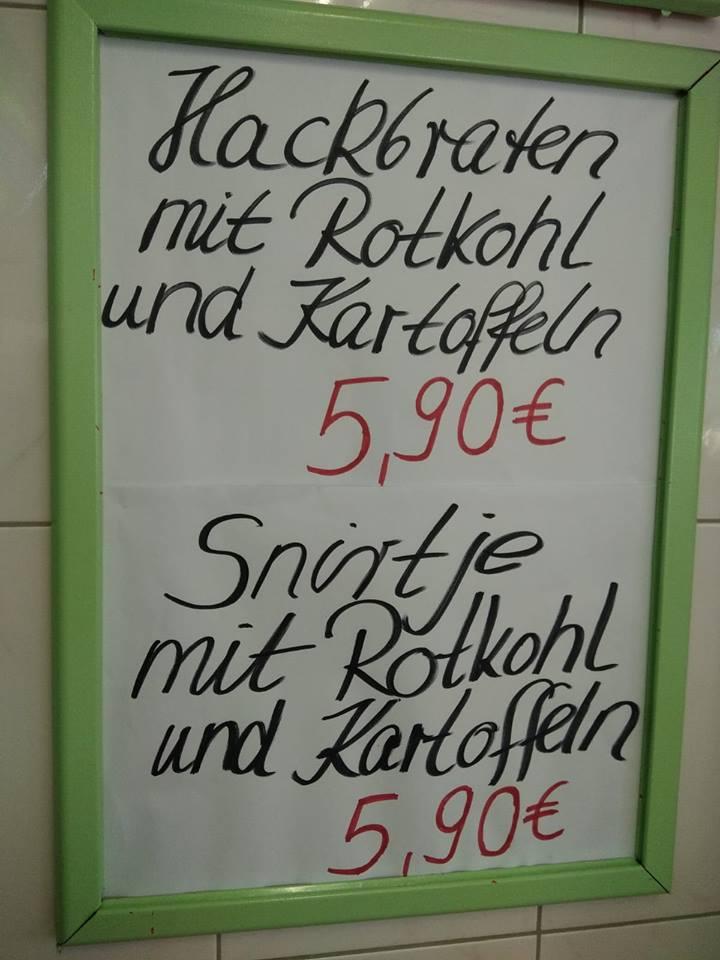 Hackbraten
mit Rotkohl
und Kartoffeln
5,90€
Snirtje
mit Rotkohl
und Kartoffeln
5,90€